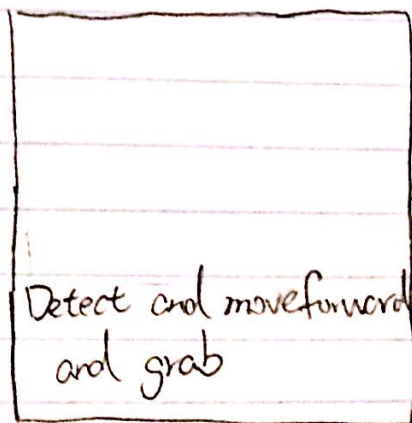 Detect and moveforward
and grab